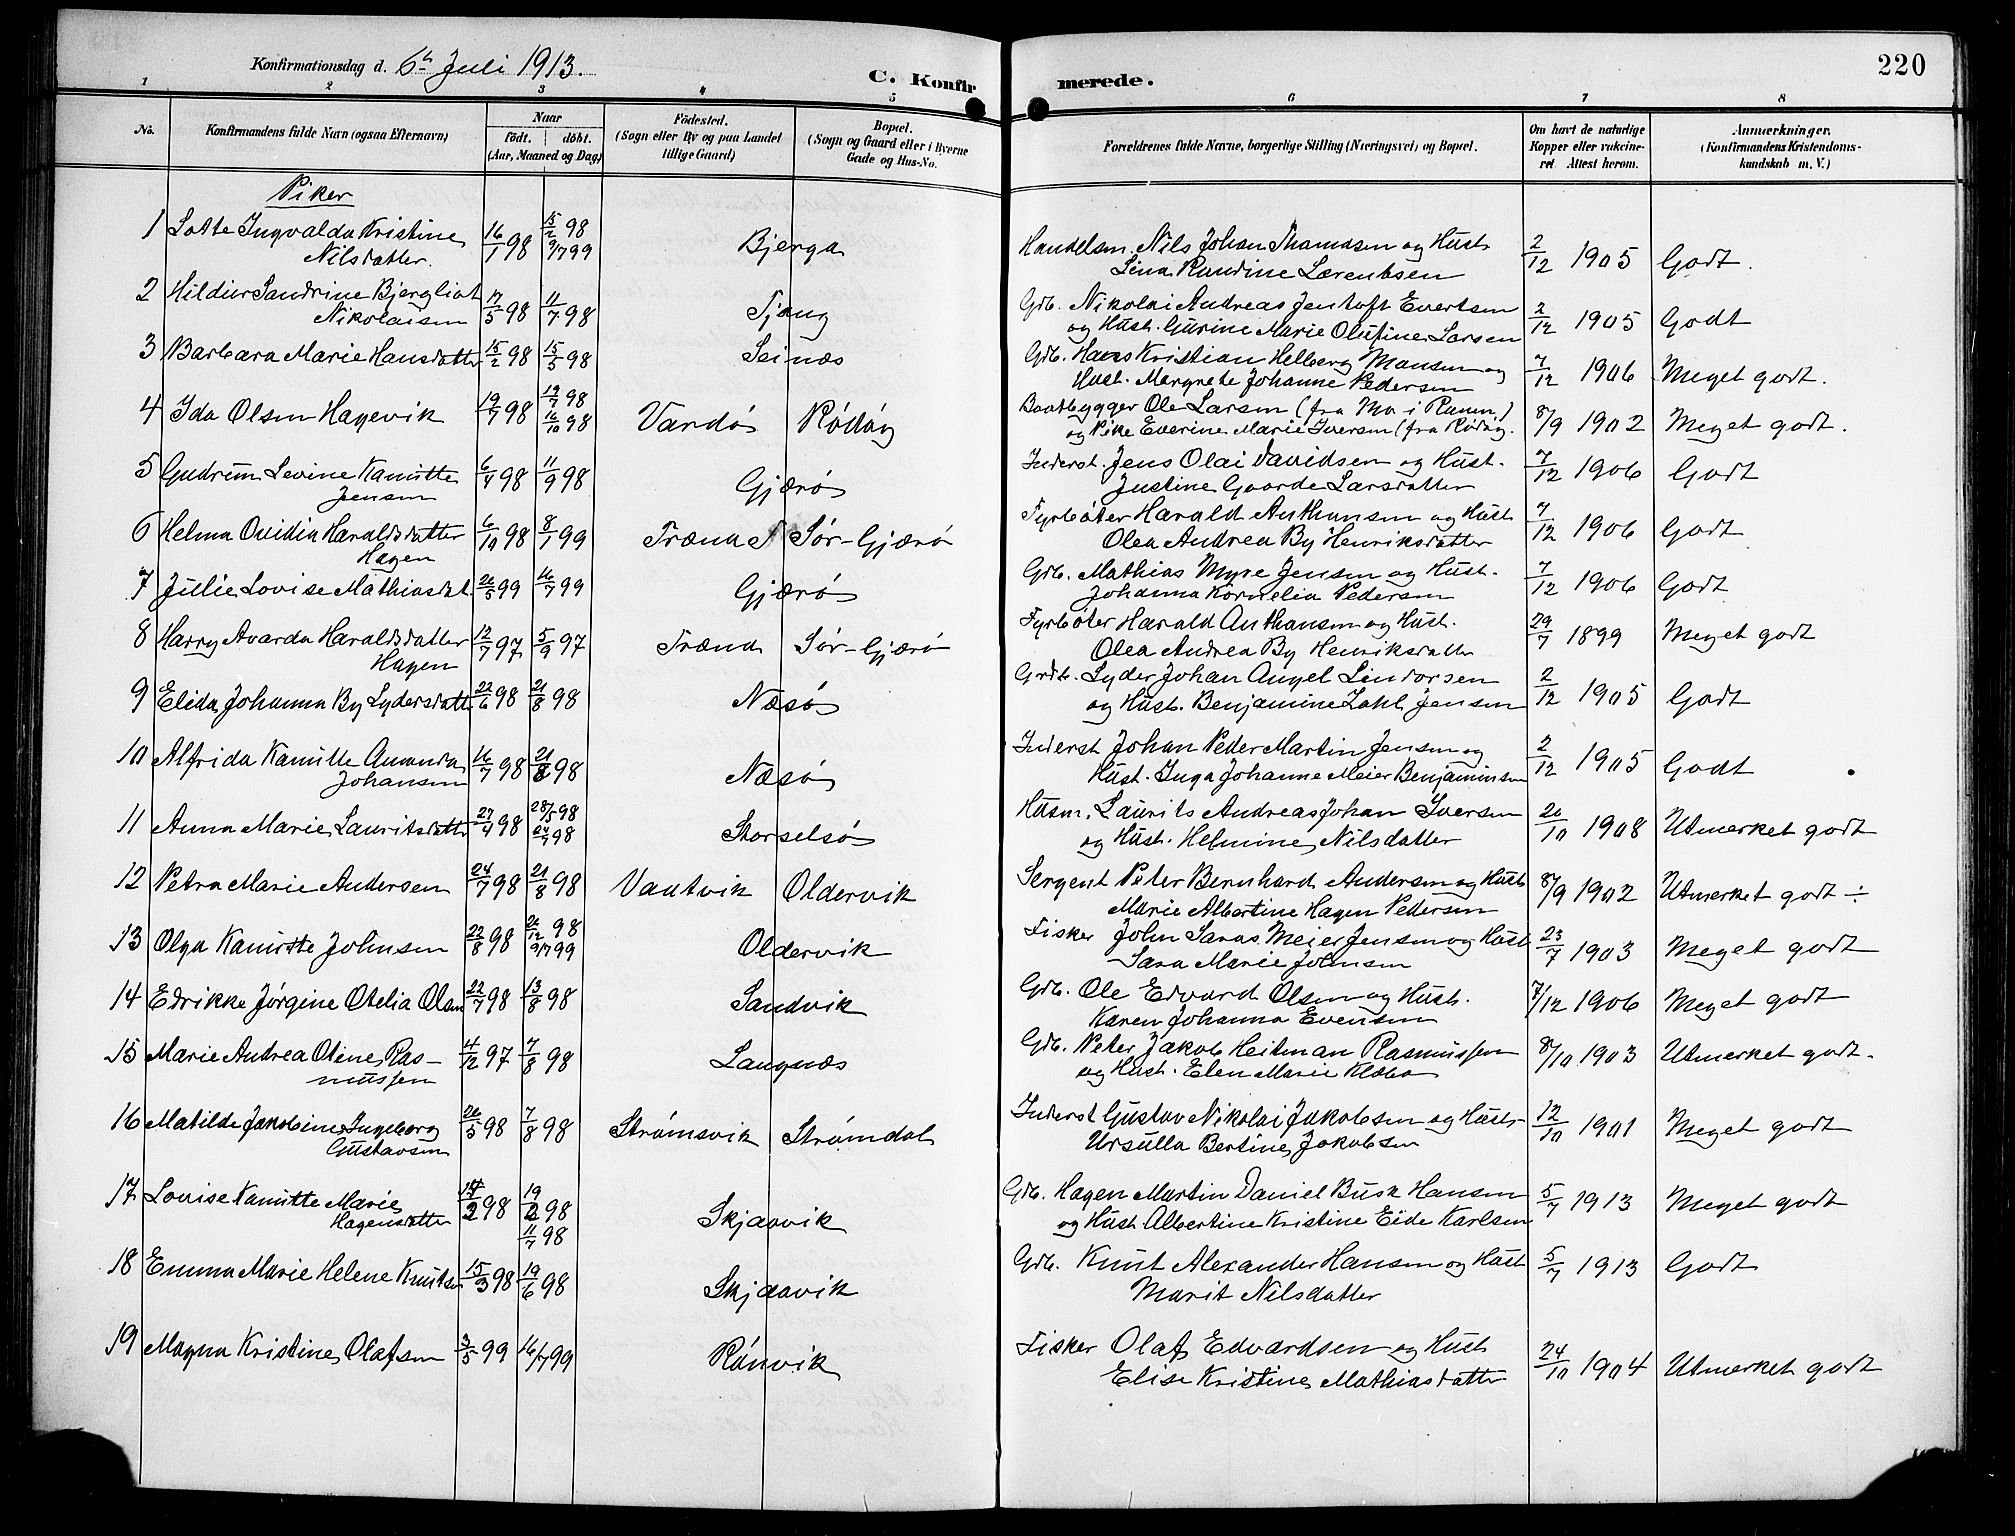 220
Konfirmationsdag d. 6te Juli 1913.
C. Konfirmerede.
1 2 3 4 5 6 7 8
No.
Konfirmandens fulde Navn (ogsaa Efternavn)
Naar
født. døbt.
(Aar, Maaned og Dag)
Födested.
(Sogn eller By og paa Landet
tillige Gaard)
Bopæl.
(Sogn og Gaard eller i Byerne
Gade og Hus-No.
Forældrenes fulde Navne, borgerlige Stilling (Næringsvei) og Bopæl.
Om havt de naturlige
Kopper eller vakcine-
ret. Attest herom.
Anmærkninger.
(Konfirmandens Kristendoms-
kundskab m. V.)
Piker
1 Lotte Ingvalda Kristine 16/1 98 15/2 98 Bjerga Handelsm. Nils Johan Thomasen og Hust. 2/12 1905 Godt.
Nilsdatter. 9/7 99 Lina Randine Lorentsen
2 Hildur Sandrine Bjergliot 17/5 98 11/7 98 Tjong Grb. Nikolai Andreas Jentoft Evertsen 2/12 1905 Godt
Nikolaisen og Hust. Gurine Marie Olufine Larsen
3 Barbara Marie Hansdatter 15/2 98 15/5 98 Seinæs Grb. Hans Kristian Helberg Monsen og 7/12 1906 Meget godt.
Hust. Margrete Johanne Pedersen
4 Ida Olsen Hagevik 19/7 98 19/7 98 Vandø Rødøy Baatbygger Ole Larsen (fra Mo i Ranen) 8/9 1902 Meget godt.
16/10 98 og Pike Everine Marie Iversen (fra Rødøy.
5 Gudrun Levine Kamitte 6/4 98 11/9 98 Gjærø Inderst. Jens Olai Davidsen og Hust. 7/12 1906 Godt
Jensen Justine Gaarde Larsdatter
6 Helma Ovidia Haraldsdatter 6/10 98 8/1 99 Træna Sør-Gjærø Fyrbøter Harald Anthonsen og Hust 7/12 1906 Godt
Hagen Olea Andrea By Henriksdatter
7 Julie Lovise Mathiasdat. 26/5 99 16/7 99 Gjærø Grb. Mathias Myre Jensen og Hust. 7/12 1906 Godt
Johanna Kornelia Pedersen
8 Harry Avarda Haraldsdatter 12/7 97 5/9 97 Træna Sør-Gjærø Fyrbøter Harald Anthonsen og Hust. 29/7 1899 Meget godt
Hagen Olea Andrea By Henriksdatter
9 Elida Johanna By Lydersdatt. 22/6 98 21/8 98 Næsø Grdb. Lyder Johan Angel Lindorsen 2/12 1905 Godt
og Hust. Benjamine Zahl Jensen
10 Alfrida Kamitte Amanda 16/7 98 21/8 98 Næsø Inderst Johan Peder Martin Jensen og 2/12 1905 Godt
Johansen Hust. Inga Johanne Meier Benjaminsen
11 Anna Marie Lauritsdatter 27/4 98 28/5 98 Storselsø Husm. Laurits Andreas Johan Iversen 20/10 1908 Utmerket godt
98 og Hust. Helmine Nilsdatter
12 Petra Marie Andersen 24/7 98 21/8 98 Vantvik Oldervik Sergent Peter Bernhard Andersen og Hust 8/9 1902 Utmerket godt ÷
Marie Albertine Hagen Pedersen
13 Olga Kamitte Johnsen 22/8 98 26/12 98 Oldervik Fisker John Saras Meier Jensen og Hust 23/7 1903 Meget godt
9/7 99 Sara Marie Johnsen
14 Edrikke Jørgine Otelia Olsen 22/7 98 13/8 98 Sandvik Grb. Ole Edvard Olsen og Hust. 7/12 1906 Meget godt
Karen Johanna Evensen
15 Marie Andrea Oline Ras- 4/12 97 7/8 98 Langnæs Grb. Peter Jakob Heitman Rasmussen 8/10 1903 Utmerket godt.
mussen og Hust. Elen Marie Klæbo
16 Matilde Jakobine Ingeborg 26/5 98 7/8 98 Strømsvik Strømdal Inderst Gustav Nikolai Jakobsen og Hust. 12/10 1901 Meget godt
Gustavsen Ursulla Bertine Jakobsen
17 Lovise Kamitte Marie 98 19/2 98 Skjaavik Grb. Hagen Martin Daniel Busk Hansen 5/7 1913 Meget godt
Hagensdatter 11/7 98 og Hust Albertine Kristine Eide Karlsen
18 Emma Marie Helene Knutsen 15/3 98 19/6 98 Skjaavik Grb. Knut Alexander Hansen og Hust 5/7 1913 Godt
Marit Nilsdatter
19 Magna Kristine Olafsen 3/5 99 16/7 99 Rønvik Fisker Olaf Edvardsen og Hust 24/10 1904 Utmerket godt
Elise Kristine Mathiasdatter